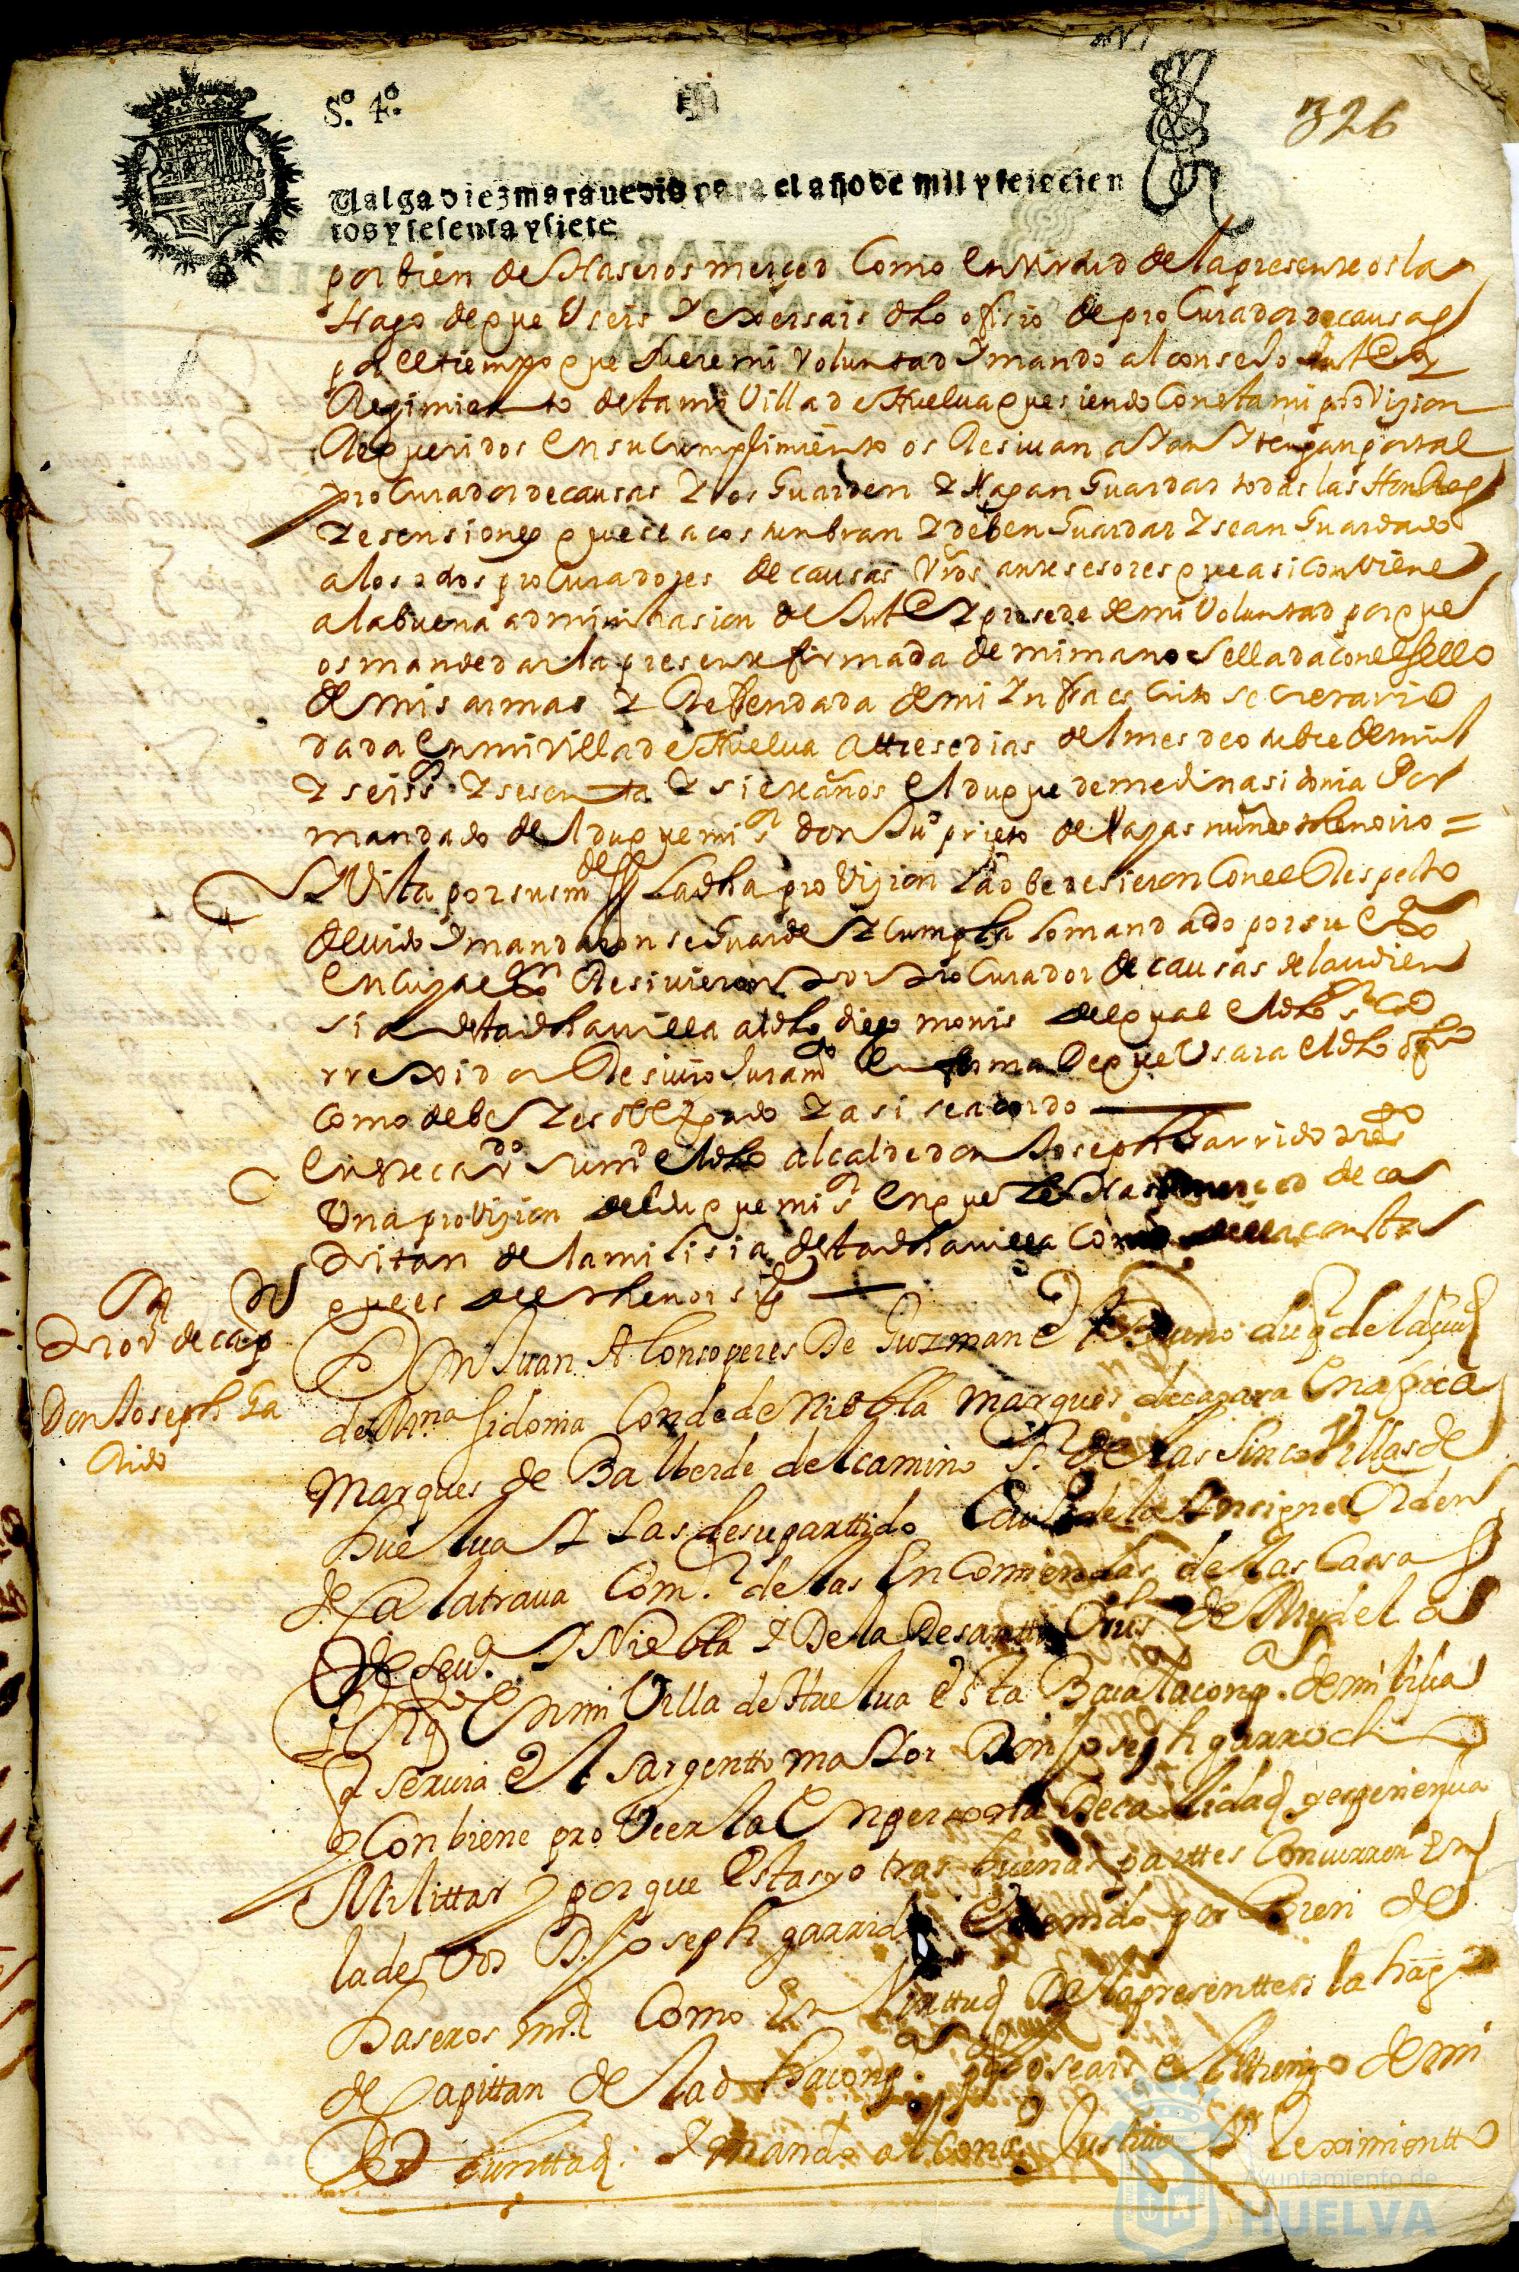 326
S.º 4.º
Valga diez marauedis para el año de mil y seiscien
tos y sesenta y siete
por bien de Haseros merced Como en virtud de la presente os la
Hago de que Useis y exersais dho ofisio de proCurador de causas
por el tiempo que fuere mi Voluntad y mando al consejo Justª y
Regimiento desta mi Villa de Huelua que siendo Con esta mi proVision
Requeridos en su Cumplimiento os Resiuan ayan y tengan por tal
proCurador de causas y os Guarden y Hagan Guardar todas las Honrras
y esensiones que se acostunbran y deben Guardar y sean Guardado
a los dhos proCuradores de causas Vros antesesores que asi conviene
a la buena administrasion de Justª y prosede de mi Voluntad por que
os mande dar la presente firmada de mi mano Sellada con el sello
de mis armas y Refrendada de mi Infraescrito secretario
dada en mi villa de Huelua a trese dias del mes de otubre de mil
y seisºˢ y sesenta y siete años el duque de medina sidonia Por
mandado del duque mi sʳ don Juº prieto de Hayas nuñes thenorio =
Y Vista por sus mdes la dha proVision La obedesieron Con el Respecto
deuido y mandaron se Guarde y Cumpla lo mandado por su Exª
en cuya exon Resiuieron por proCurador de causas de la audien
sia desta dha uilla al dho diego monis del qual el dho sʳ Co
rrexidor Resiuio Juramᵗᵒ en forma de que Usara el dho ofº
como debe y es obligado y asi se acordo
En este cavdo su md el dho alcalde don Joseph Garrido presᵗᵒ
Una proVision del duque mi sʳ en que le Hase merced de ca
pitan de la milisia desta dha uilla como della consta
que es del thenor sigᵗᵉ
Pron de cap
Don Joseph Ga
rrido
Don Juan Alonso peres De Guzman el Bueno duq de la ciud
de Mna sidonia Conde de Niebla Marques de cazaza En africa
Marques de Balberde del camino S.ʳ de las sinco Villas de
Huelua y Las de su parttido Cau de la Insigne Orden
de Calatraua Com.ʳ de las Encomiendas de las Casas
de Seuª y Niebla y De la De santta Crus de Mudela
En mi Villa de Huelua Esta Baca la conpª de milisia
q seruia el sargentto maior Don Joseph garrocho
y Conbiene proVeerla En persona De calidad y esperiensia
Milittar y porque Estas y otras buenas parttes Concurren En
la de Vos D. Joseph garrido E tenido por bien de
haseros md Como En Virttud De la presentte os la hago
de Capittan de la dha conpª q lo seais el tienpo de mi
Voluntad. y mando al Consº Justicia y Reximientto
Ayuntamiento de
HUELVA